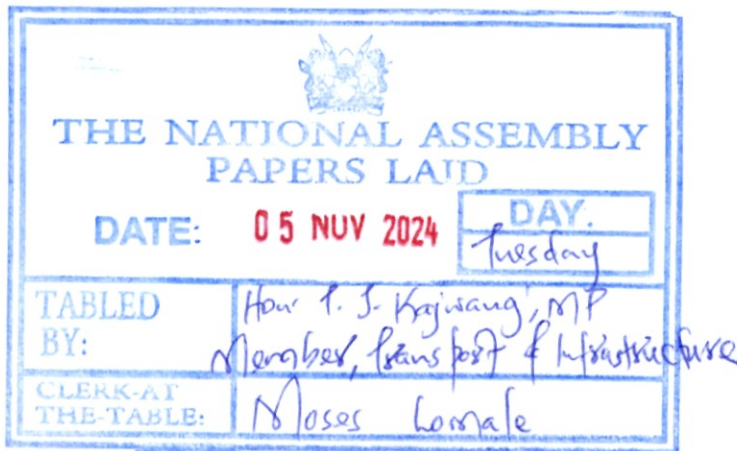 THE NATIONAL ASSEMBLY
PAPERS LAID
DATE: 05 NOV 2024
DAY.
Tuesday
TABLED BY:
Hon T. J. Kajwang', MP
Member, Transport & Infrastructure
CLERK-AT THE-TABLE:
Moses Lomale